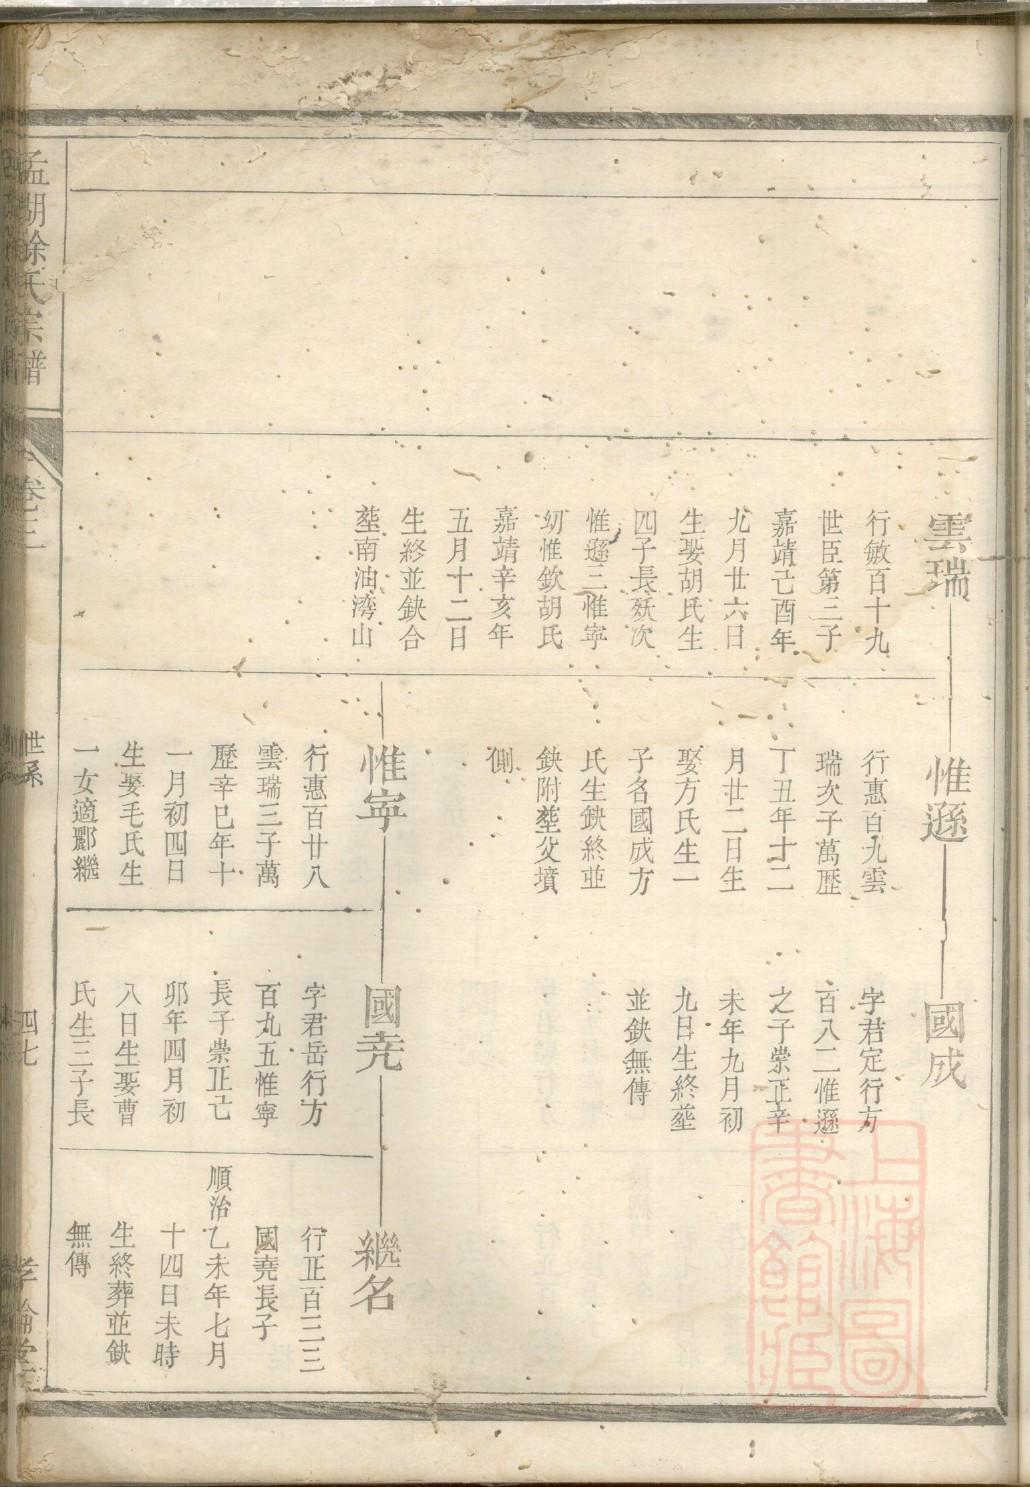 雲瑞
行敏百十九
世臣第三子
嘉靖己酉年
九月廿六日
生娶胡氏生
四子長妖次
惟遜三惟寧
㓜惟欽胡氏
嘉靖辛亥年
五月十二日
生終並缺合
塟南油湾山
惟遜
行惠百九雲
瑞次子萬歷
丁丑年十二
月廿二日生
娶方氏生一
子名國成方
氏生缺終並
缺附塟父墳
側
惟寧
行惠百廿八
雲瑞三子萬
歷辛巳年十
一月初四日
生娶毛氏生
一女適酈繼
國成
字君定行方
百八二惟遜
之子崇正辛
未年九月初
九日生終塟
並缺無傳
國尭
字君岳行方
百九五惟寧
長子崇正己
卯年四月初
八日生娶曹
氏生三子長
繼名
行正百三三
國尭長子
順治乙未年七月
十四日未時
生終葬並缺
無傳
孟湖徐氏宗譜
卷三
世系
四七
孝倫堂
上海圖
書館藏